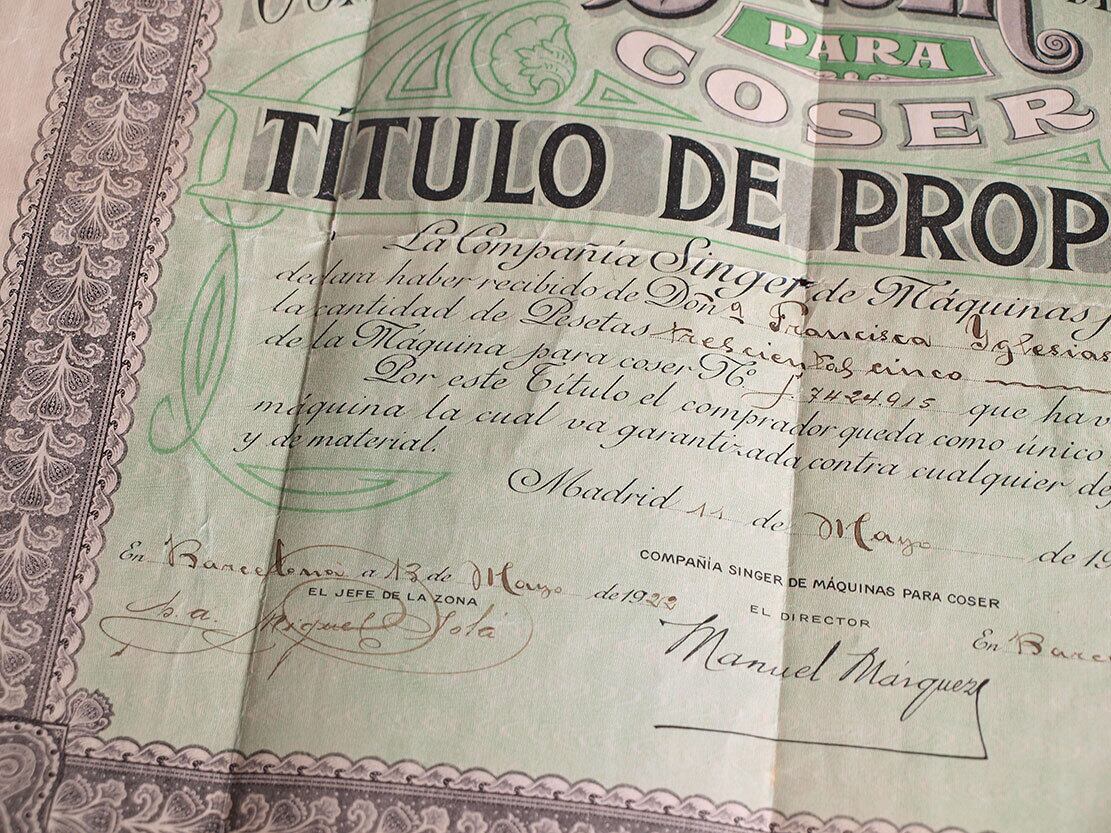 PARA
COSER
TÍTULO DE PROP
La Compañía Singer de Máquinas
declara haber recibido de Don ª Francisca Yglesias
la cantidad de Pesetas trescientas cinco
de la Máquina para coser Nº 7424.915 que hav
Por este Título el comprador queda como único
máquina la cual va garantizada contra cualquier de
y de material.
Madrid 11 de Mayo de 19
COMPAÑÍA SINGER DE MÁQUINAS PARA COSER
EL DIRECTOR
Manuel Márquez
En Barcelona a 13 de Mayo de 1922
EL JEFE DE LA ZONA
Miquel Solá
En Barce